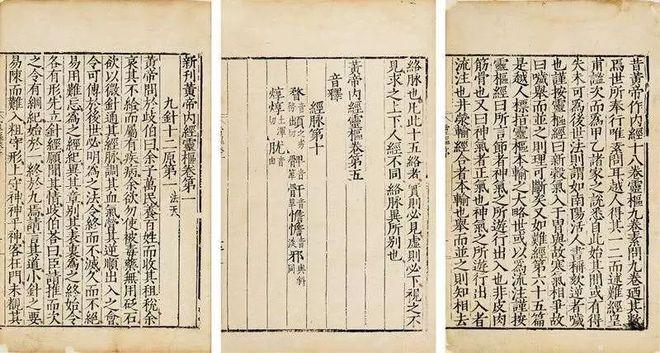 昔黃帝作內經十八卷靈樞九卷素問九卷迺其數
焉世所奉行唯素問耳越人得其一二而述難經皇
甫謐次而為甲乙諸家之說悉自此始其間或有得
失未可為後世法則謂如南陽活人書稱欬逆者噦
也謹按靈樞經曰新穀氣入于胃與故寒氣相爭故
曰噦舉而並之則理可斷矣又如難經第六十五篇
是越人標指靈樞本輸之大略世或以為流注謹按
靈樞經曰所言節者神氣之所遊行出入也非皮肉
筋骨也又曰神氣者正氣也神氣之所遊行出入者
流注也井滎輸經合者本輸也舉而並之則知相去
絡脉也凡此十五絡者實則必見虛則必下視之不
見求之上下人經不同絡脉異所別也
黃帝內經靈樞卷第五
音釋
經脉第十
新刊黃帝內經靈樞卷第一
九針十二原第一 法天
黃帝問於歧伯曰余子萬民養百姓而收其租稅余
哀其不給而屬有疾病余欲勿使被毒藥無用砭石
欲以微針通其經脉調其血氣營其逆順出入之會
令可傳於後世必明為之法令終而不滅久而不絕
易用難忘為之經紀異其章別其表裏為之終始令
各有形先立針經願聞其情歧伯荅曰臣請推而次
之令有綱紀始於一終於九焉請言其道小針之要
易陳而難入粗守形上守神神乎神客在門未覩其